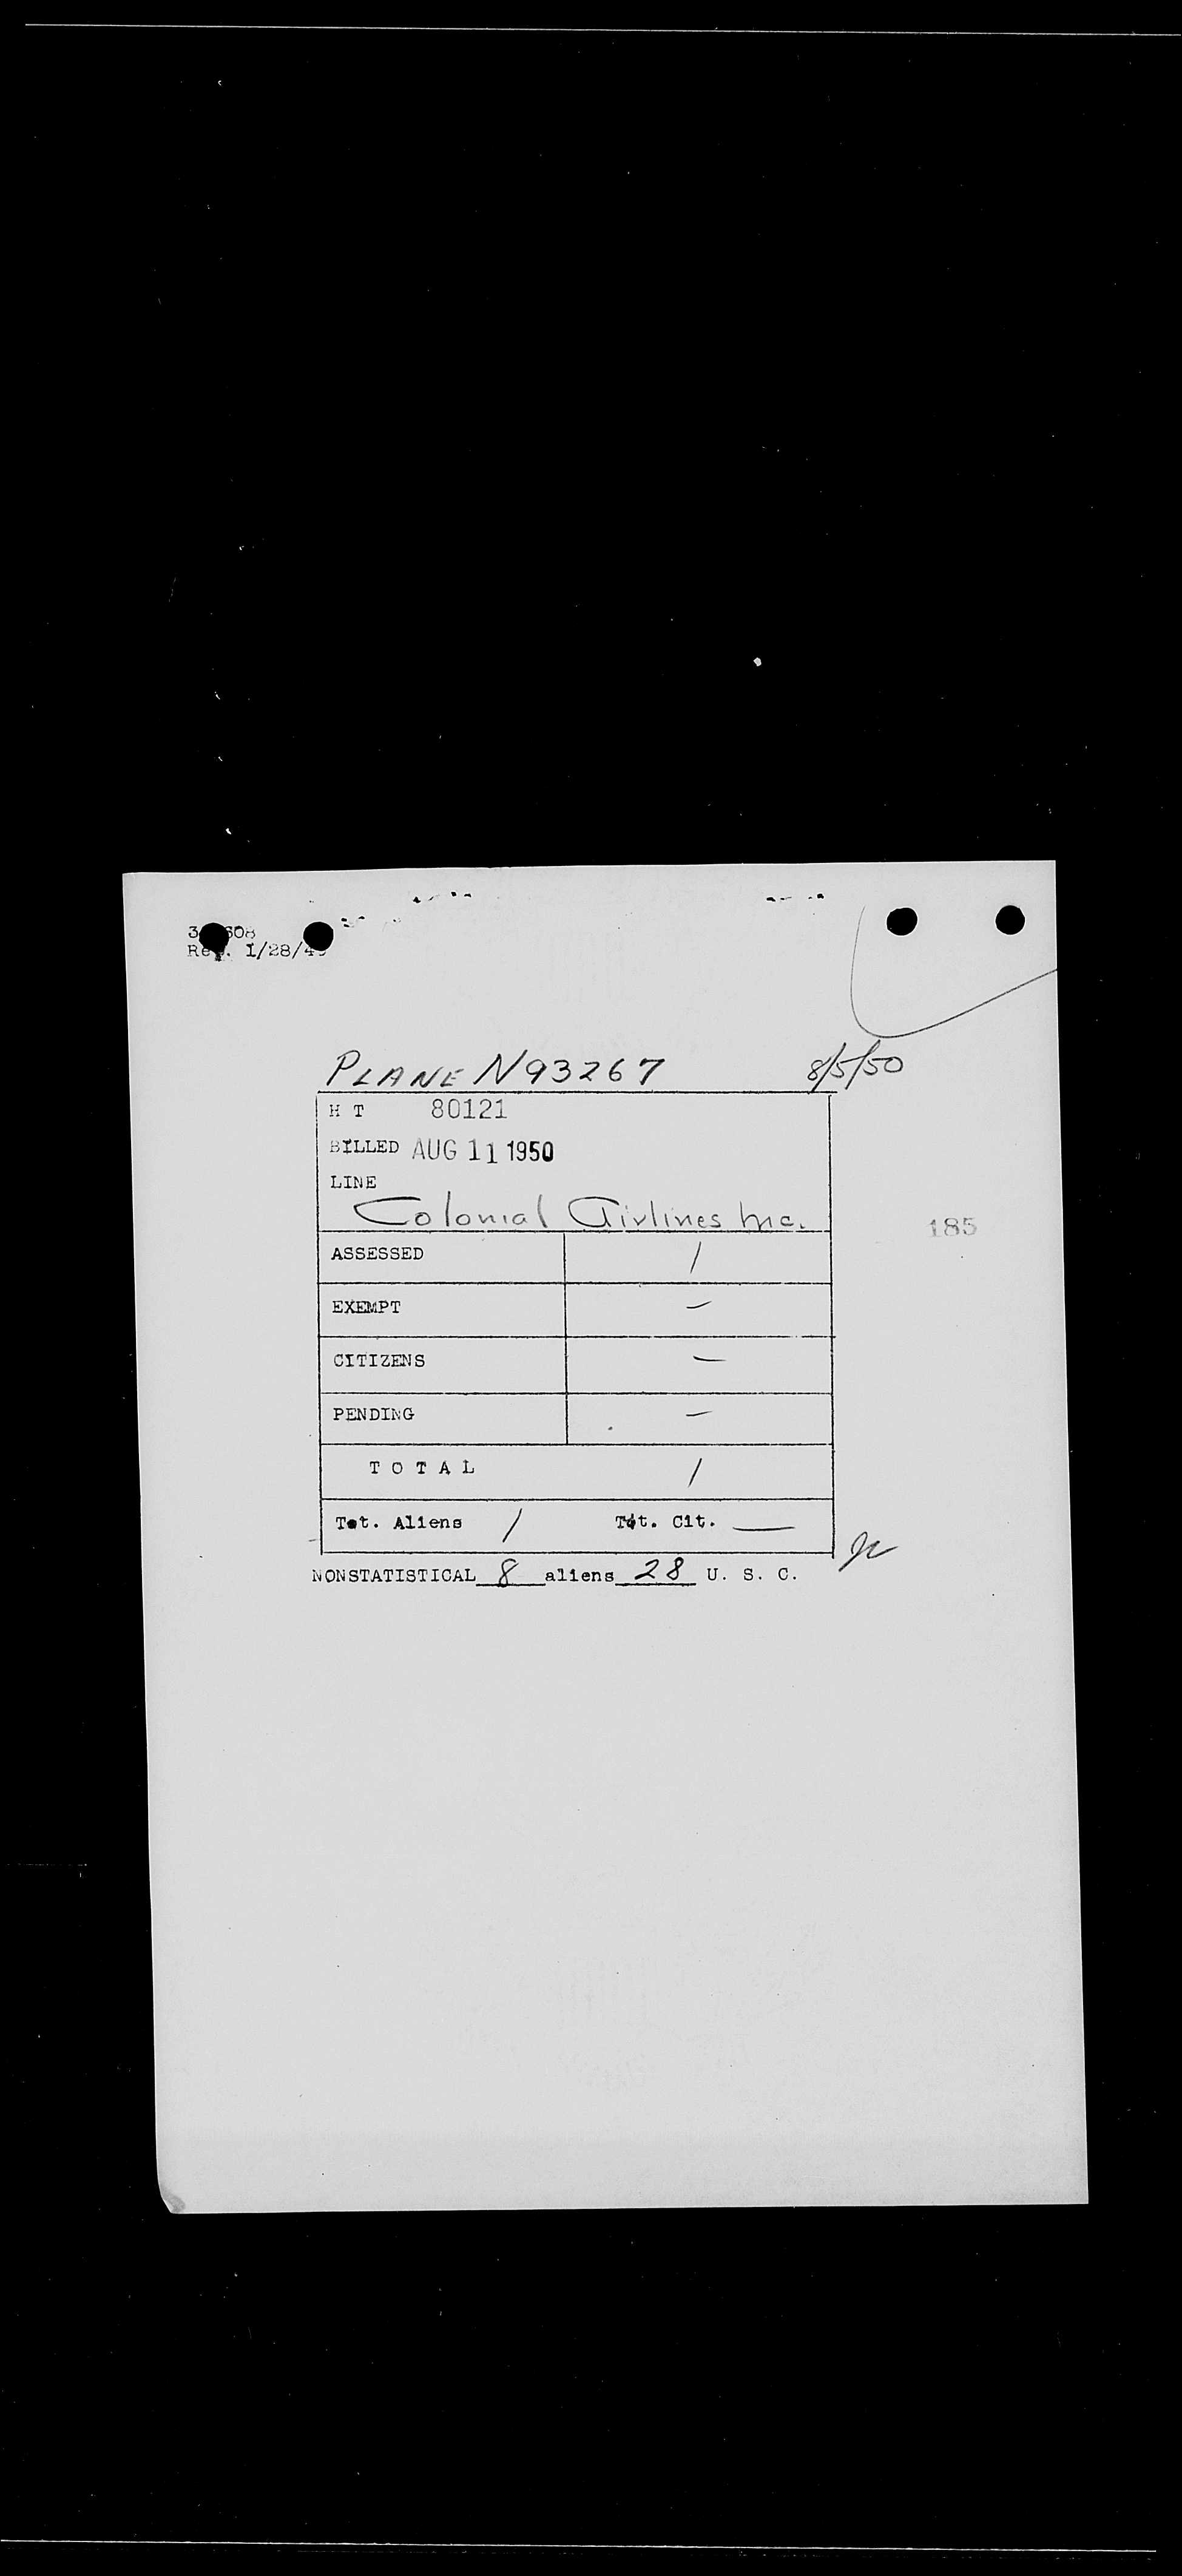 Rev. 1/28/49
PLANE N93267 8/5/50
H T 80121
BILLED AUG 11 1950
LINE
Colonial Airlines Inc.
185
ASSESSED /
EXEMPT —
CITIZENS —
PENDING —
T O T A L /
Tot. Aliens / Tot. Cit. —
NONSTATISTICAL 8 aliens 28 U. S. C.